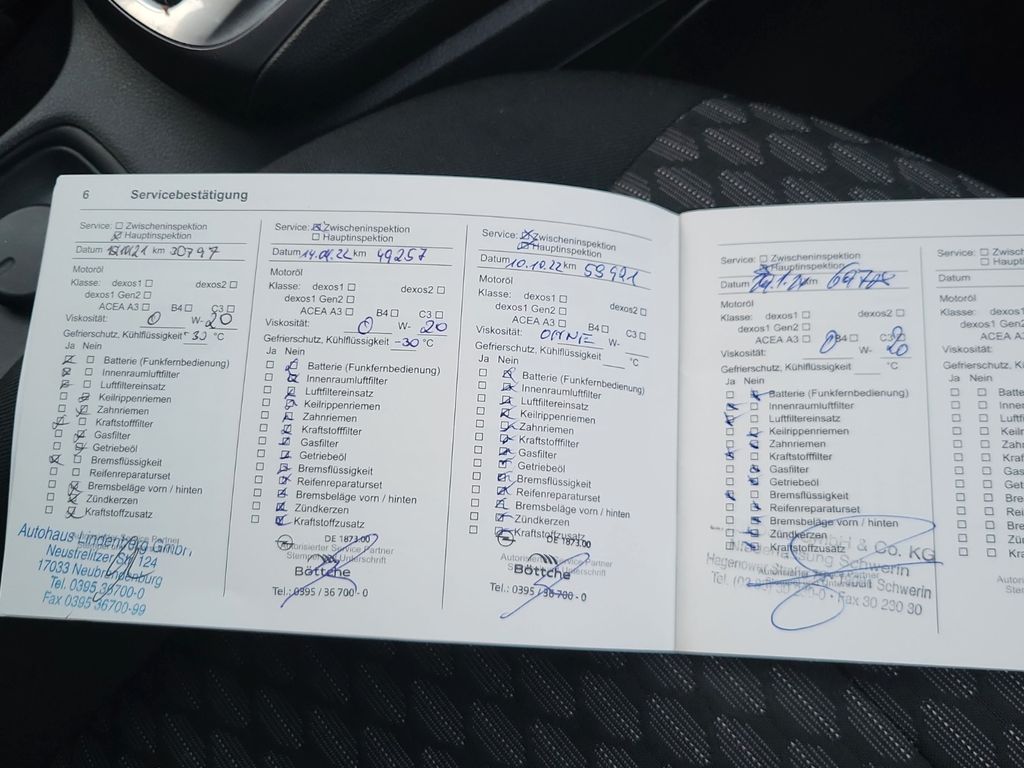 6 Servicebestätigung
Service: Zwischeninspektion
Hauptinspektion
Datum km 30797
Motoröl
Klasse: dexos1 dexos2
dexos1 Gen2
ACEA A3 B4 C3
Viskosität: 0 W- 20
Gefrierschutz, Kühlflüssigkeit -30 °C
Ja Nein
Batterie (Funkfernbedienung)
Innenraumluftfilter
Luftfiltereinsatz
Keilrippenriemen
Zahnriemen
Kraftstofffilter
Gasfilter
Getriebeöl
Bremsflüssigkeit
Reifenreparaturset
Bremsbeläge vorn / hinten
Zündkerzen
Kraftstoffzusatz
Autohaus
Neustrelitzer Str. 124
17033 Neubrandenburg
Tel. 0395 36700-0
Fax 0395 36700-99
Service: Zwischeninspektion
Hauptinspektion
Datum km 49257
Motoröl
Klasse: dexos1 dexos2
dexos1 Gen2
ACEA A3 B4 C3
Viskosität: 0 W- 20
Gefrierschutz, Kühlflüssigkeit -30 °C
Ja Nein
Batterie (Funkfernbedienung)
Innenraumluftfilter
Luftfiltereinsatz
Keilrippenriemen
Zahnriemen
Kraftstofffilter
Gasfilter
Getriebeöl
Bremsflüssigkeit
Reifenreparaturset
Bremsbeläge vorn / hinten
Zündkerzen
Kraftstoffzusatz
DE 1873.00
Autorisierter Service Partner
Stempel Unterschrift
Böttche
Tel.: 0395 / 36 700 - 0
Service: Zwischeninspektion
Hauptinspektion
Datum 10.10.22 km 59991
Motoröl
Klasse: dexos1 dexos2
dexos1 Gen2
ACEA A3 B4 C3
Viskosität: OHNE W-
Gefrierschutz, Kühlflüssigkeit °C
Ja Nein
Batterie (Funkfernbedienung)
Innenraumluftfilter
Luftfiltereinsatz
Keilrippenriemen
Zahnriemen
Kraftstofffilter
Gasfilter
Getriebeöl
Bremsflüssigkeit
Reifenreparaturset
Bremsbeläge vorn / hinten
Zündkerzen
Kraftstoffzusatz
DE 1873.00
Autorisierter Partner
Stempel Unterschrift
Böttche
Tel.: 0395 / 36 700 - 0
Service: Zwischeninspektion
Hauptinspektion
Datum km
Motoröl
Klasse: dexos1 dexos2
dexos1 Gen2
ACEA A3 B4 C3
Viskosität: 0 W- 20
Gefrierschutz, Kühlflüssigkeit °C
Ja Nein
Batterie (Funkfernbedienung)
Innenraumluftfilter
Luftfiltereinsatz
Keilrippenriemen
Zahnriemen
Kraftstofffilter
Gasfilter
Getriebeöl
Bremsflüssigkeit
Reifenreparaturset
Bremsbeläge vorn / hinten
Zündkerzen
Kraftstoffzusatz
GmbH & Co. KG
Niederlassung Schwerin
Hagenower Schwerin
Fax 30 230 30
Service: Zwisc
Haupt
Datum
Motoröl
Klasse: dexos1
dexos1
ACEA
Viskosität:
Gefrierschutz, Kühl
Ja Nein
Batte
Innen
Luft
Keilr
Zah
Kraf
Gas
Get
Bre
Rei
Bre
Zün
Kra